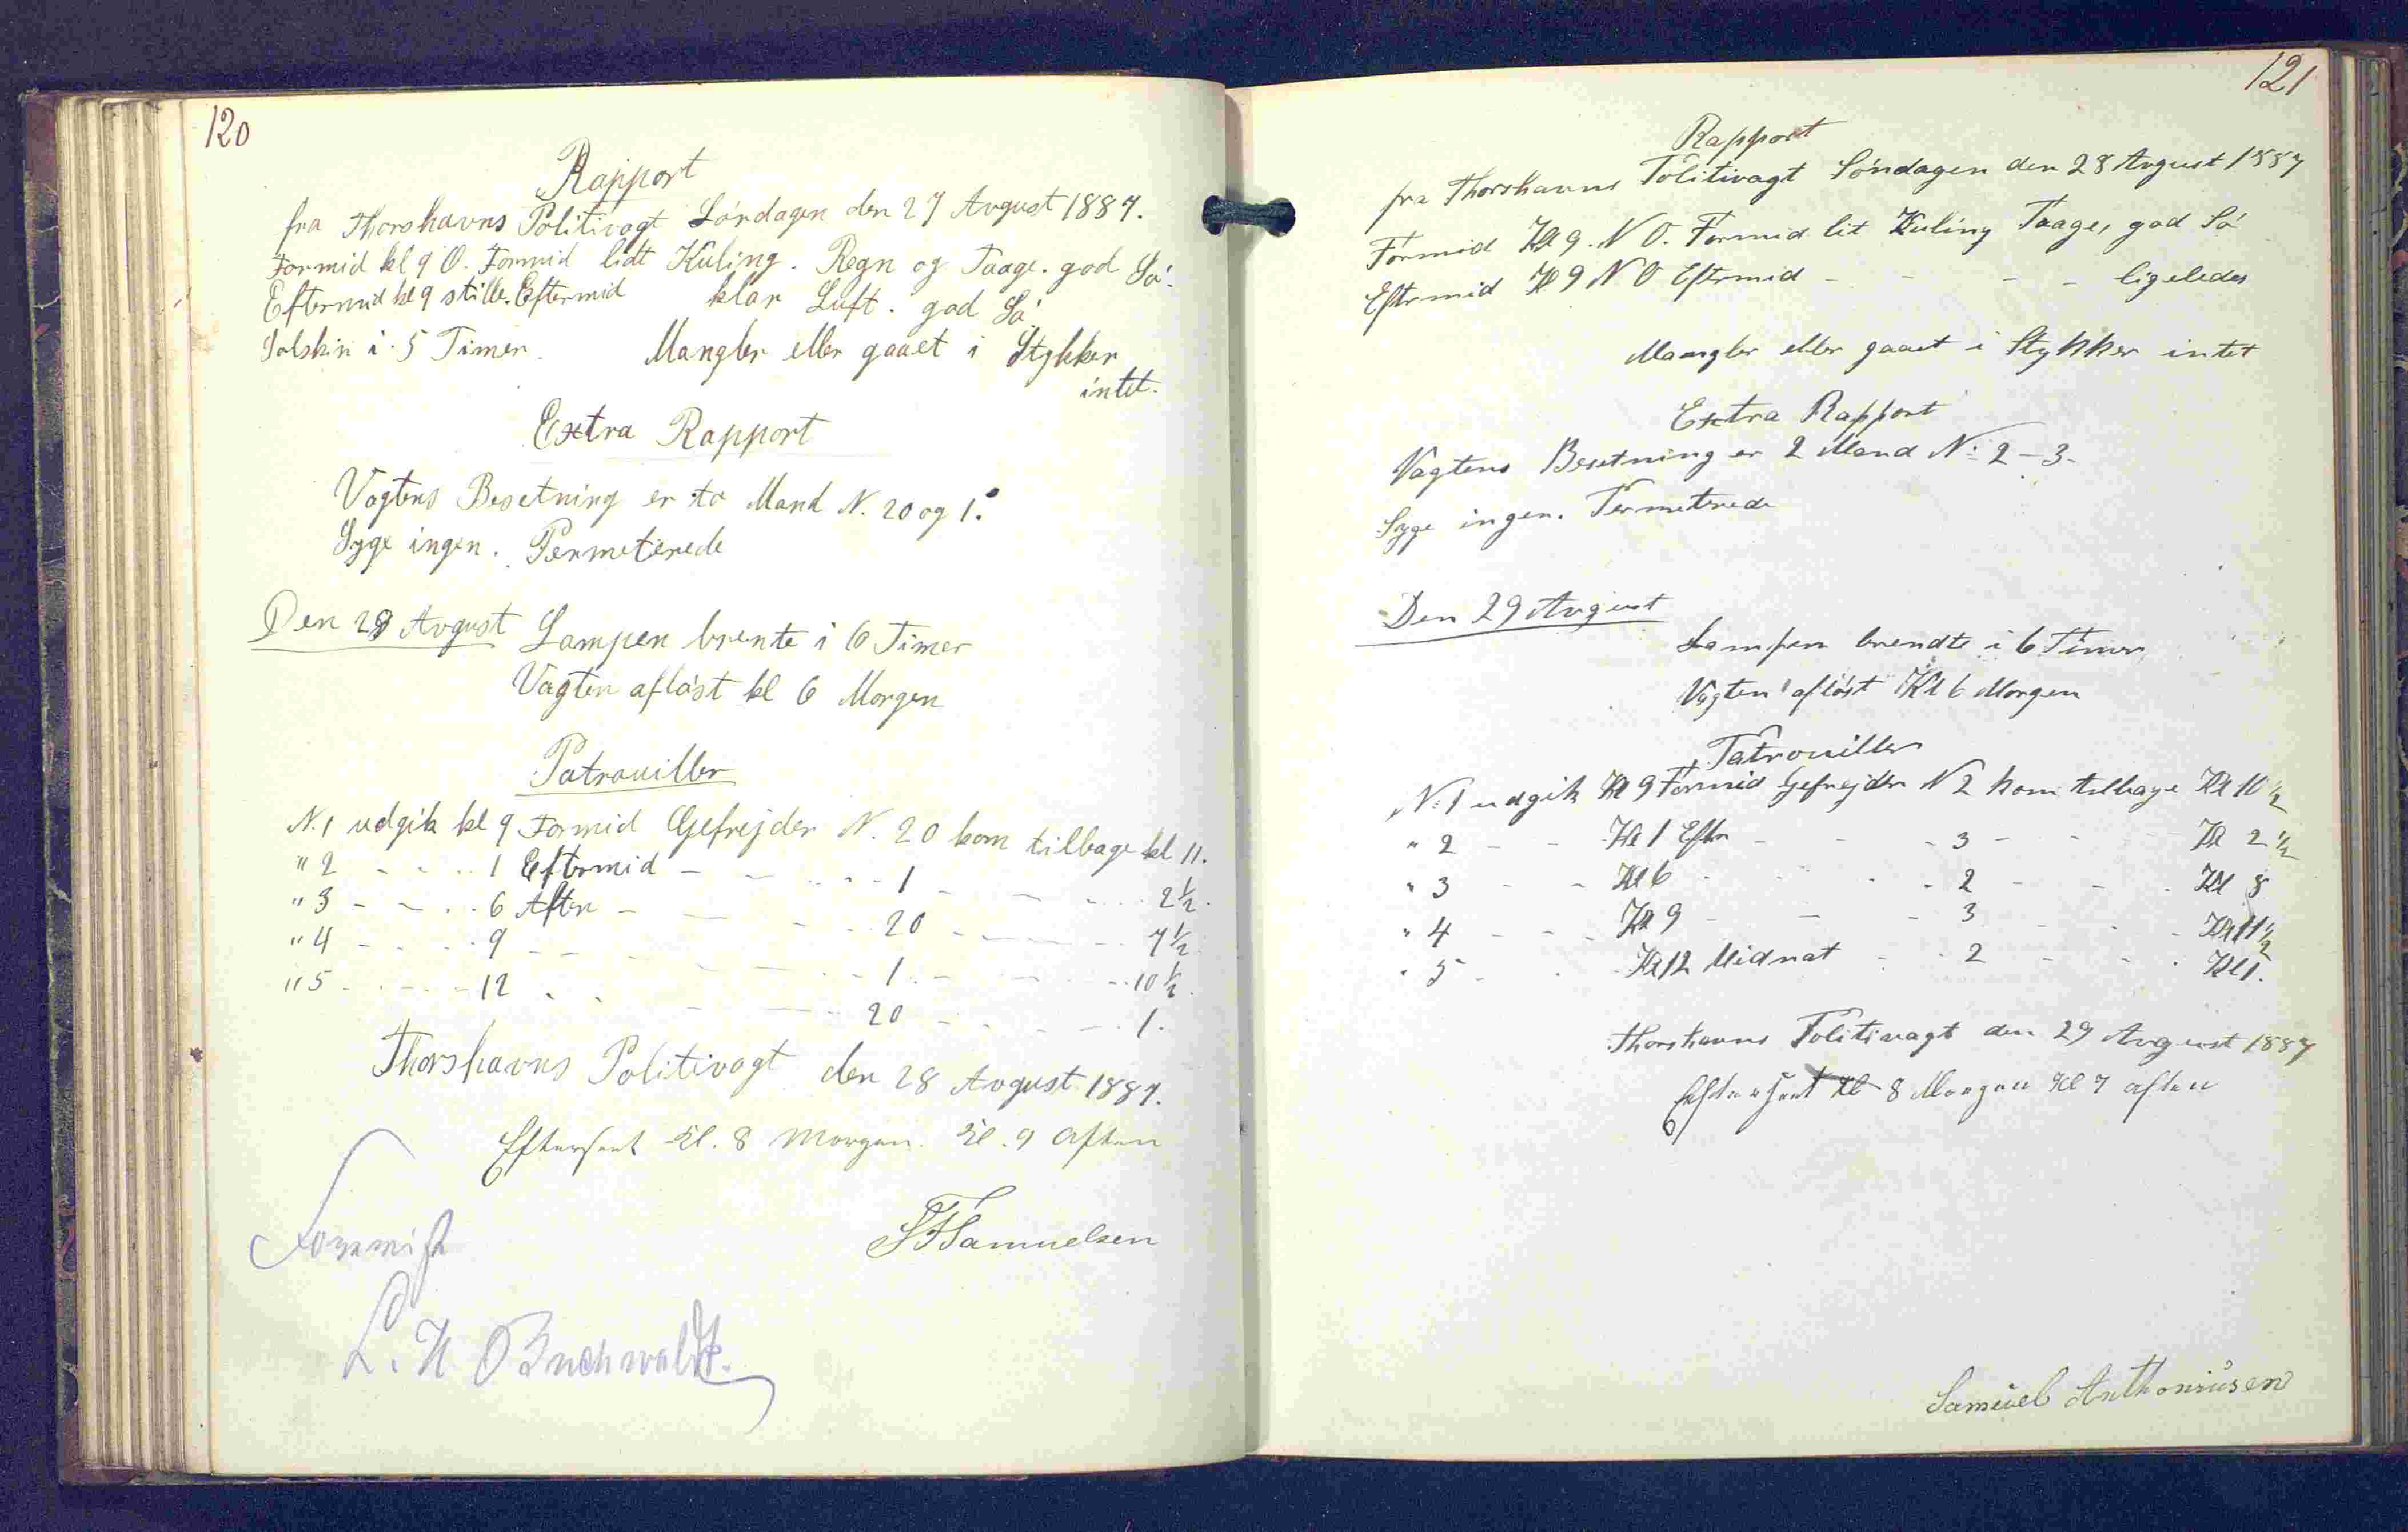 120
Rapport
fra Thorshavns Politivagt Lørdagen den 27 August 1887.
Formid kl 9 O. Formid lidt Kuling. Regn og Taage. god Sø.
Eftermid kl 9 stille. Eftermid klar Luft. god Sø
Solskin i 5 Timer. Mangler eller gaaet i Stykker
intet.
Extra Rapport
Vagtens Besetning er to Mand N. 20 og 1.
Syge ingen. Permeterede
Den 28 August Lampen brente i 6 Timer
Vagten afløst kl 6 Morgen
Patrouiller
N. 1 udgik kl 9 Formid Gefrejder N. 20 kom tilbage kl 11.
" 2 - - - 1 Eftermid - - - 1 - - - 2 1/2.
" 3 - - - 6 Aften - - - 20 - - - 7 1/2
" 4 - - - 9 - - - 1 - - - 10 1/2.
" 5 - - - 12 - - - 20 - - - 1.
Thorshavns Politivagt den 28 August 1887.
Efterseet Kl. 8 Morgen. Kl. 9 Aften
SFSamuelsen
L. H. Buchwaldt.
121
Rapport
fra Thorshavns Politivagt Søndagen den 28 August 1887
Formid Kl 9. N O. Formid lit Kuling Taage, god Sø
Eftrmid Kl 9 N O Eftrmid - - - - ligeledes
Mangler eller gaaet i Stykker intet
Extra Rapport
Vagtens Besetning er 2 Mand N: 2 - 3.
Syge ingen. Permetrede
Den 29 August
Lampen brendte i 6 Timer
Vagten afløst Kl 6 Morgen
Patrouiller
N: 1 udgik Kl 9 Formid Gefrejder N 2 kom tilbage Kl 10 1/2
" 2 - - Kl 1 Eftr - - 3 - - Kl 2 1/2
" 3 - - Kl 6 - - 2 - - Kl 8
" 4 - - Kl 9 - - 3 - - Kl 11 1/2
" 5 - - Kl 12 Midnat - - 2 - - Kl 1.
Thorshavns Politivagt den 29 August 1887
Efterseet Kl 8 Morgen Kl 7 aften
Samuel Anthoniusen